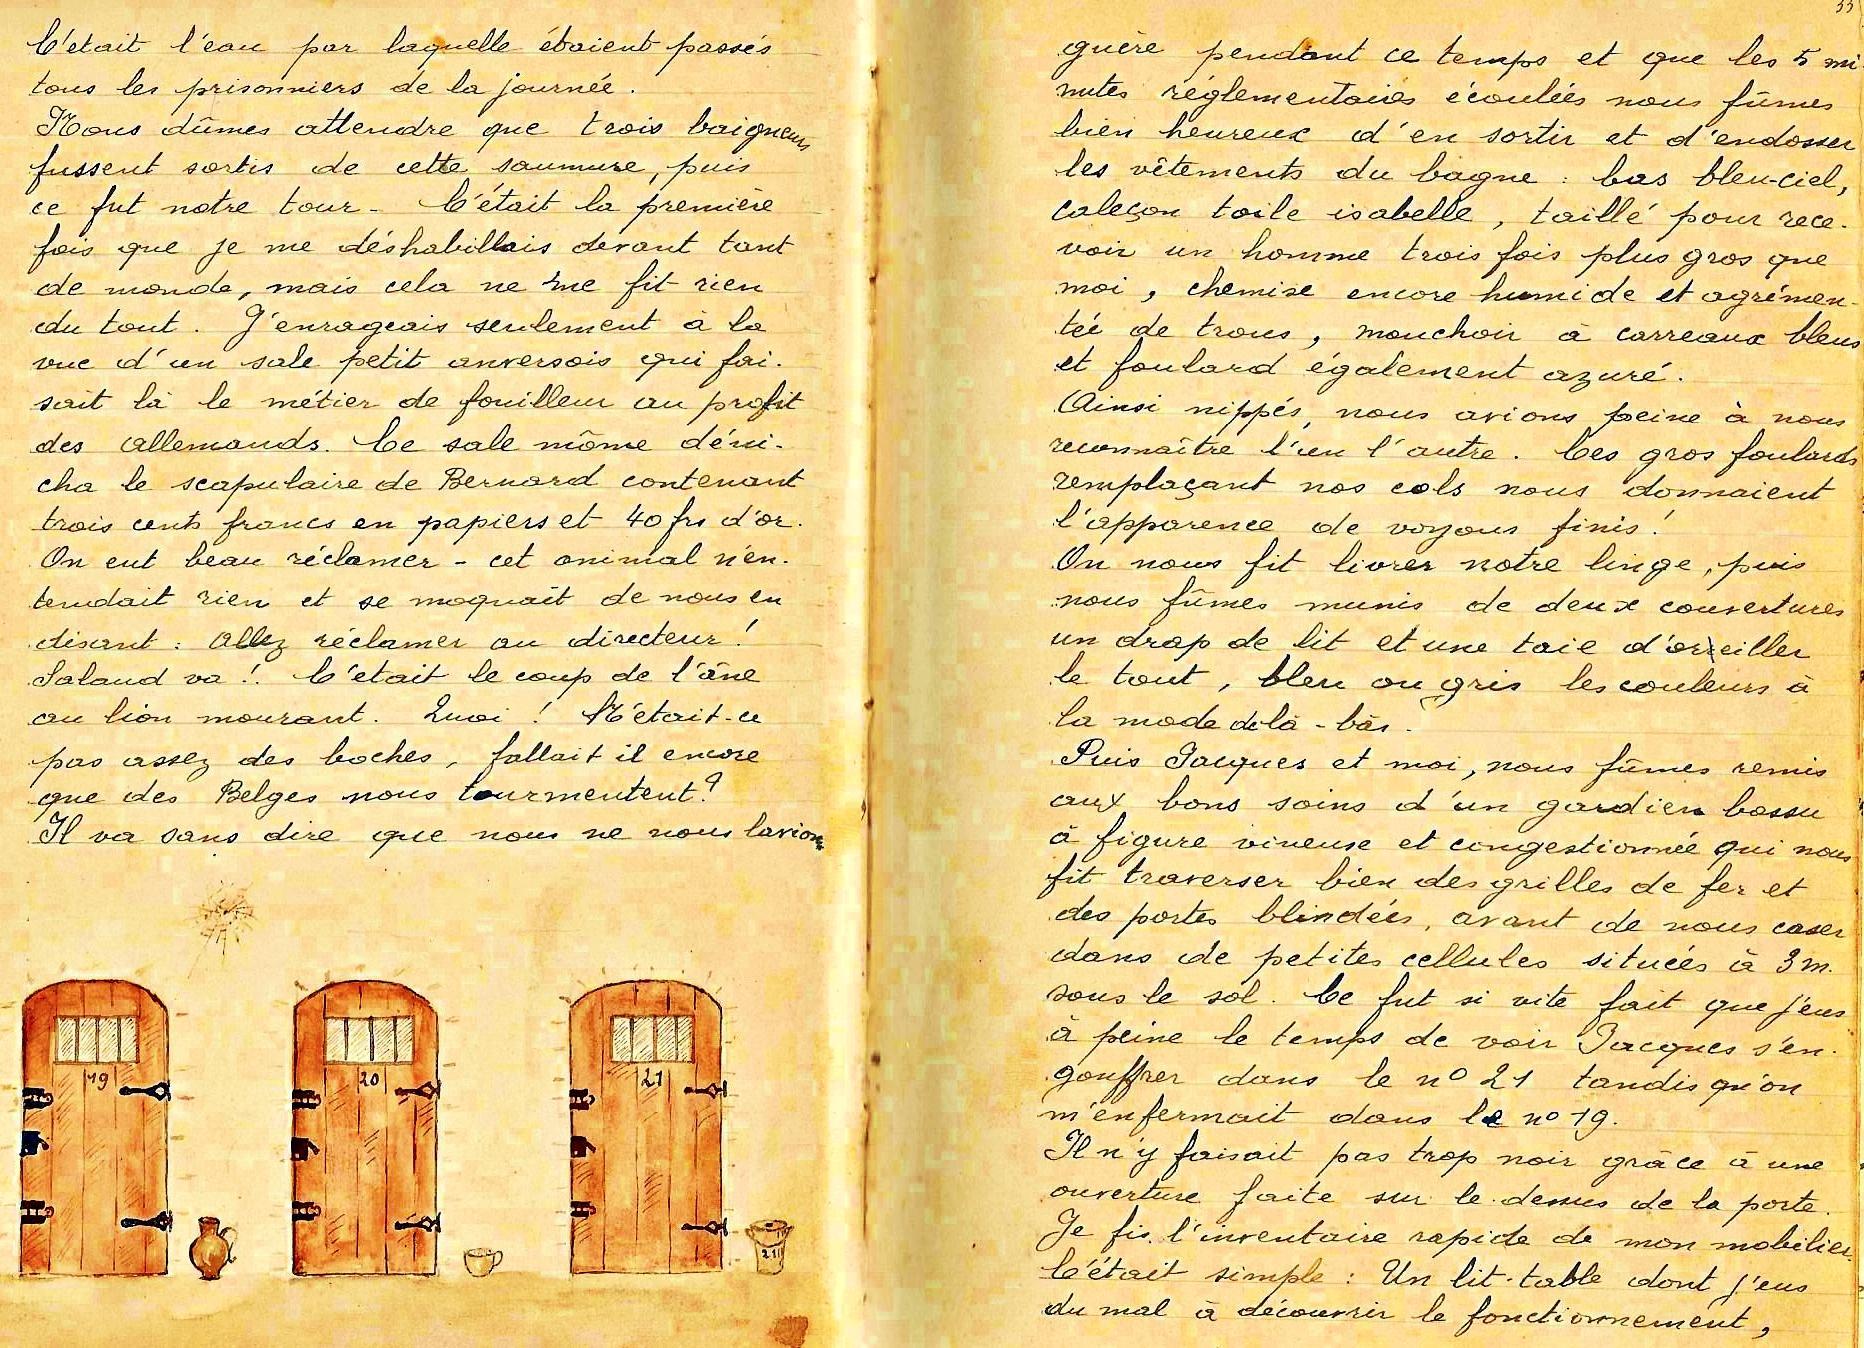 C'etait l'eau par laquelle étaient passés
tous les prisonniers de la journée.
Nous dûmes attendre que trois baigneurs
fussent sortis de cette saumure, puis
ce fut notre tour - C'était la première
fois que je me déshabillais devant tant
de monde, mais cela ne me fit rien
du tout. J'enrageais seulement à la
vue d'un sale petit anversois qui fai-
sait là le métier de fouilleur au profit
des allemands. Ce sale môme déni-
cha le scapulaire de Bernard contenant
trois cents francs en papiers et 40 frs d'or.
On eut beau réclamer - cet animal n'en-
tendait rien et se moquait de nous en
disant : allez réclamer au directeur !
Salaud va !. C'était le coup de l'âne
au lion mourant. Quoi ! N'était-ce
pas assez des boches, fallait il encore
que des Belges nous tourmentent ?
Il va sans dire que nous ne nous lavions
19
20
21
21
33
guère pendant ce temps et que les 5 mi-
nutes réglementaires écoulées nous fûmes
bien heureux d'en sortir et d'endosser
les vêtements du bagne : bas bleu-ciel,
caleçon toile isabelle, taillé pour rece-
voir un homme trois fois plus gros que
moi, chemise encore humide et agrémen-
tée de trous, mouchoir à carreaux bleus
et foulard également azuré.
Ainsi nippés, nous avions peine à nous
reconnaître l'un l'autre. Ces gros foulards
remplaçant nos cols nous donnaient
l'apparence de voyous finis !
On nous fit livrer notre linge, puis
nous fûmes munis de deux couvertures
un drap de lit et une taie d'oreiller
le tout, bleu ou gris les couleurs à
la mode de là-bas.
Puis Jacques et moi, nous fûmes remis
aux bons soins d'un gardien bossu
à figure vineuse et congestionnée qui nous
fit traverser bien des grilles de fer et
des portes blindées, avant de nous caser
dans de petites cellules situées à 3 m.
sous le sol. Ce fut si vite fait que j'eus
à peine le temps de voir Jacques s'en-
gouffrer dans le nº 21 tandis qu'on
m'enfermait dans le nº 19.
Il n'y faisait pas trop noir grâce à une
ouverture faite sur le dessus de la porte.
Je fis l'inventaire rapide de mon mobilier
C'était simple : Un lit-table dont j'eus
du mal à découvrir le fonctionnement,